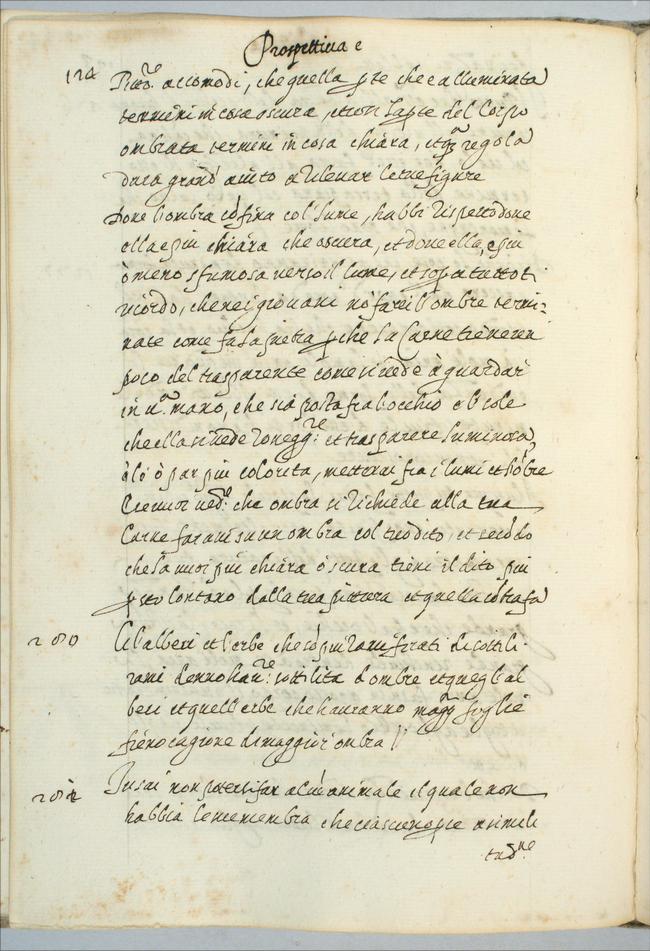 Prospettiva e
124
Pitto.re accomodi, che quella pte che è alluminata
termini in cosa oscura, et cosi la pte del Corpo
ombrata termini in cosa chiara, et q.a regola
dara grand' aiuto a rilevar le tue figure
Dove l'ombra cōfina col lume, habbi rispetto dove
ella è piu chiara che oscura, et dove ella, è piu
ò meno sfumosa verso il lume, et sopa tutto ti
ricordo, che nei giovani nō facci l'ombre termi=
nate come fa la pietra pche la Carne tiene un
poco del trasparente come si vede à guardar
in u.a mano, che sia posta fra l'occhio e'l sole
che ella si vede rosegg.re et trasparere luminosa,
più colorita, metterai fra i lumi et l'ōbre
ved.re che ombra si richiede alla tua
Carne farai su un ombra col tuo dito, et secōdo
che la vuoi piu chiara ò scura tieni il dito piu
psto lontano dalla tua pittura et quella cōtrafa
280
Gl'alberi et l'erbe che sō piu ramificati di sottili
rami denno hav.re: sottilita d'ombre et quegli al
beri et quell'erbe che hauranno magg.ri foglie
fieno cagione di maggior ombra
282
Tu sai non potersi far alcūo animale il quale non
habbia le sue membra che ciascuno p se a simili
tud.ne